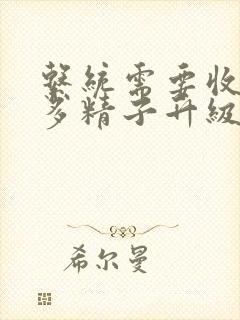 繫統需要收
多精子升級
希尔曼